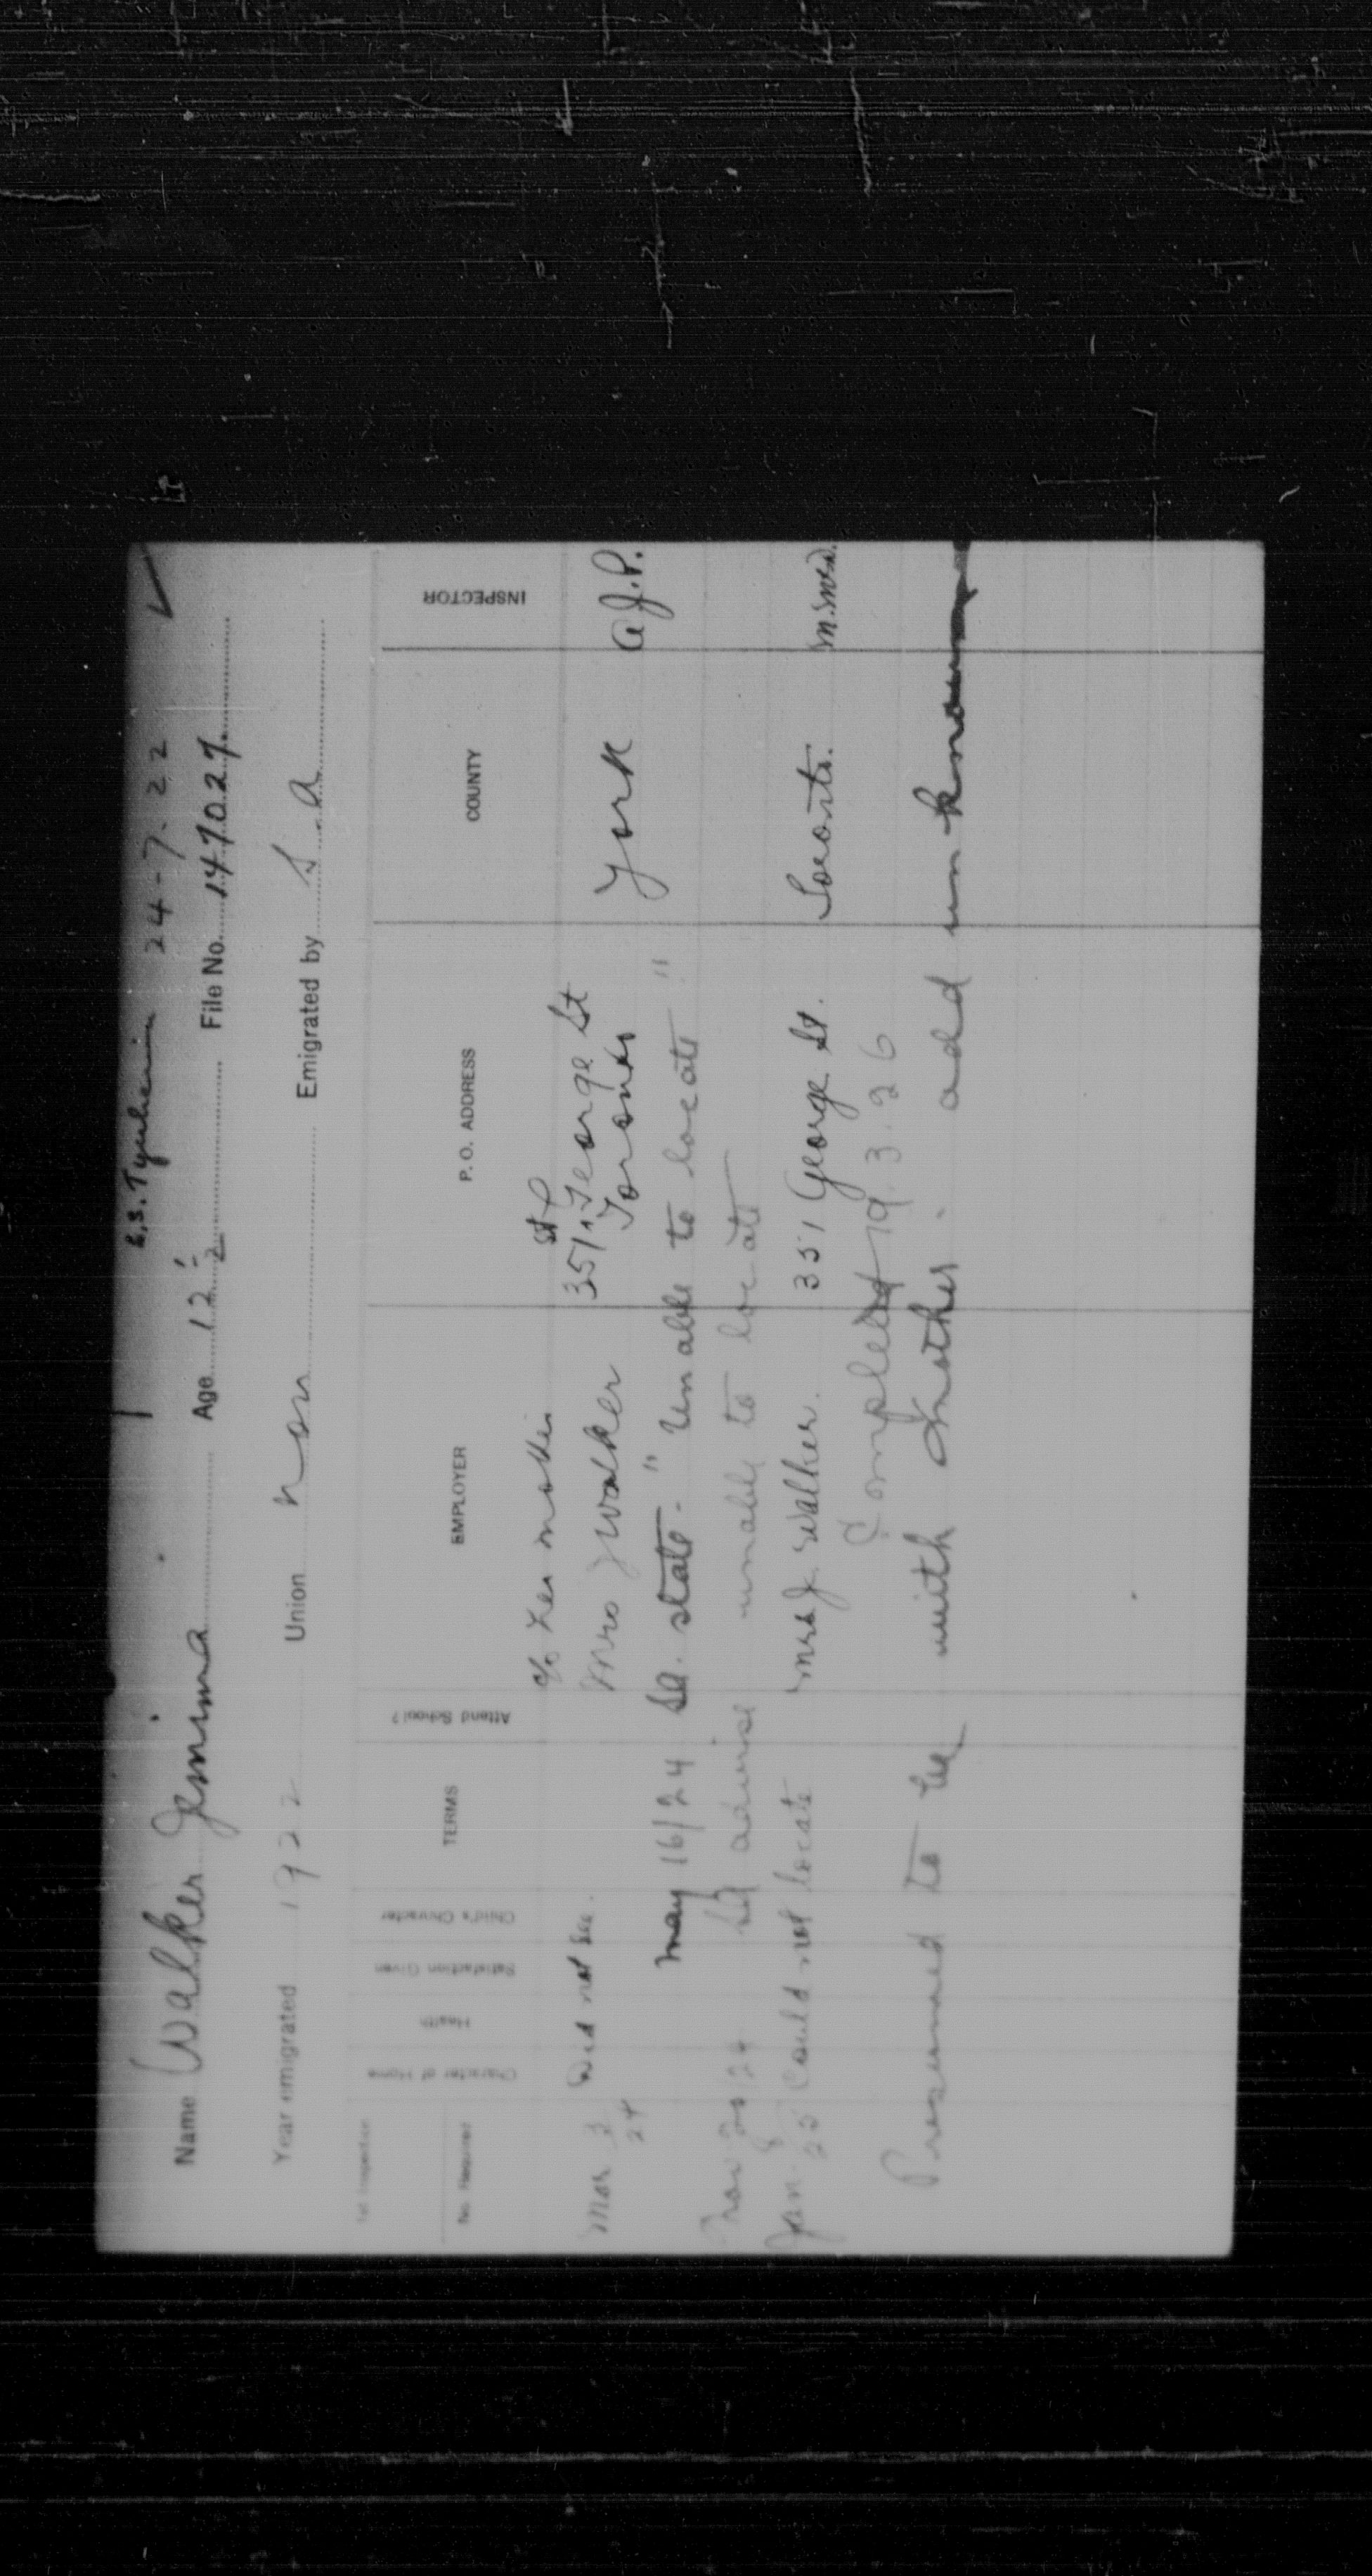 S.S. Tyrrhenia 24-7-22
Name Walker Jemima Age 12 1/2 File No. 147027
Year emigrated 1922 Union non Emigrated by S.A.
1st Inspection
No Required Character of Home Health Satisfaction Given Child's Character TERMS Attend School? EMPLOYER P.O. ADDRESS COUNTY INSPECTOR
c/o her mother
Mar 3 24 Did not see. Mrs J Walker 351 George St Toronto York A.J.P.
May 16/24 S.A. state - "Unable to locate"
Nov 20/24 S.A. advise unable to locate
Jan 25 Could not locate Mrs J. Walker. 351 George St. Toronto.
Completed 19.3.26
Presumed to be with mother. add unknown